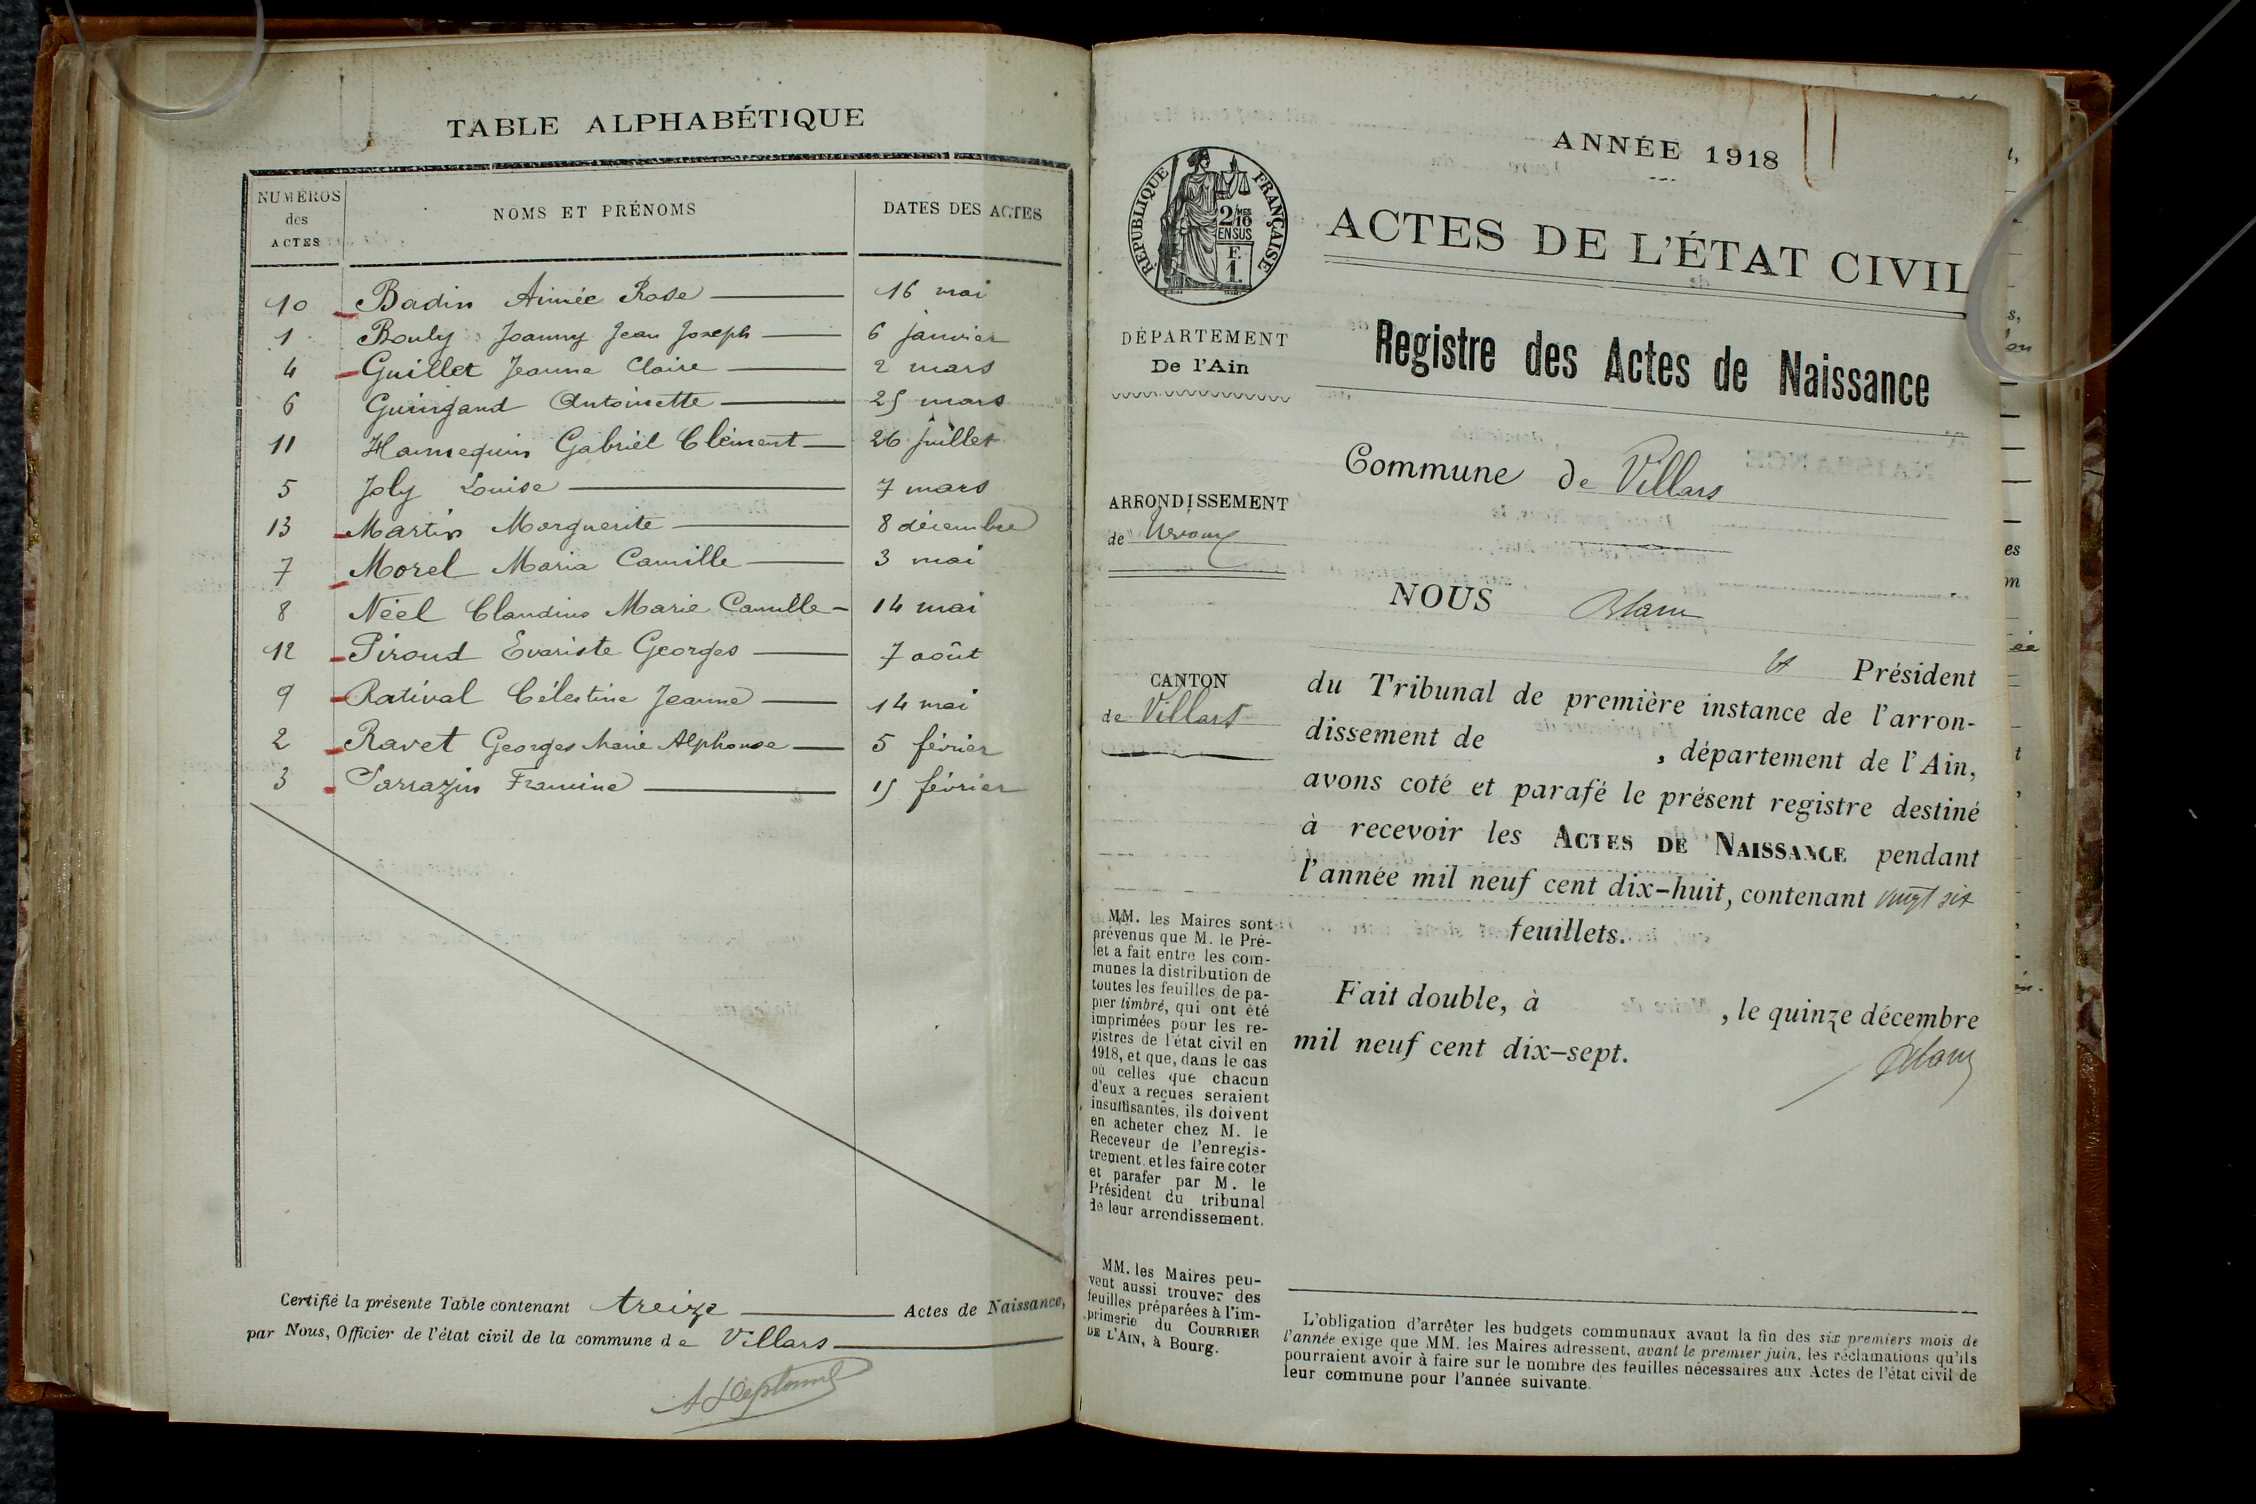 TABLE ALPHABÉTIQUE
NUMÉROS des ACTES
NOMS ET PRÉNOMS
DATES DES ACTES
10 Badin Aimée Rose 16 mai
1 Bouly Joanny Jean Joseph 6 janvier
4 Guillet Jeanne Claire 2 mars
6 Guingand Antoinette 25 mars
11 Hannequin Gabriel Clément 26 juillet
5 Joly Louise 7 mars
13 Martin Marguerite 8 décembre
7 Morel Maria Camille 3 mai
8 Néel Claudius Marie Camille 14 mai
12 Piroud Evariste Georges 7 août
9 Ratival Célestine Jeanne 14 mai
2 Ravet Georges Marie Alphonse 5 février
3 Sarrazin Francine 15 février
Certifié la présente Table contenant treize Actes de Naissance,
par Nous, Officier de l'état civil de la commune de Villars
ANNÉE 1918
RÉPUBLIQUE FRANÇAISE
2/10 MES
EN SUS
F.
1.
ACTES DE L'ÉTAT CIVIL
DÉPARTEMENT
De l'Ain
Registre des Actes de Naissance
Commune de Villars
ARRONDISSEMENT
de Trévoux
NOUS
Président
CANTON
de Villars
du Tribunal de première instance de l'arron-
dissement de , département de l'Ain,
avons coté et parafé le présent registre destiné
à recevoir les ACTES DE NAISSANCE pendant
l'année mil neuf cent dix-huit, contenant vingt six
feuillets.
Fait double, à , le quinze décembre
mil neuf cent dix-sept.
MM. les Maires sont
prévenus que M. le Pré-
fet a fait entre les com-
munes la distribution de
toutes les feuilles de pa-
pier timbré, qui ont été
imprimées pour les re-
gistres de l'état civil en
1918, et que, dans le cas
où celles que chacun
d'eux a reçues seraient
insuffisantes, ils doivent
en acheter chez M. le
Receveur de l'enregis-
trement et les faire coter
et parafer par M. le
Président du tribunal
de leur arrondissement.
MM. les Maires peu-
vent aussi trouver des
feuilles préparées à l'im-
primerie du COURRIER
DE L'AIN, à Bourg.
L'obligation d'arrêter les budgets communaux avant la fin des six premiers mois de
l'année exige que MM. les Maires adressent, avant le premier juin, les réclamations qu'ils
pourraient avoir à faire sur le nombre des feuilles nécessaires aux Actes de l'état civil de
leur commune pour l'année suivante.